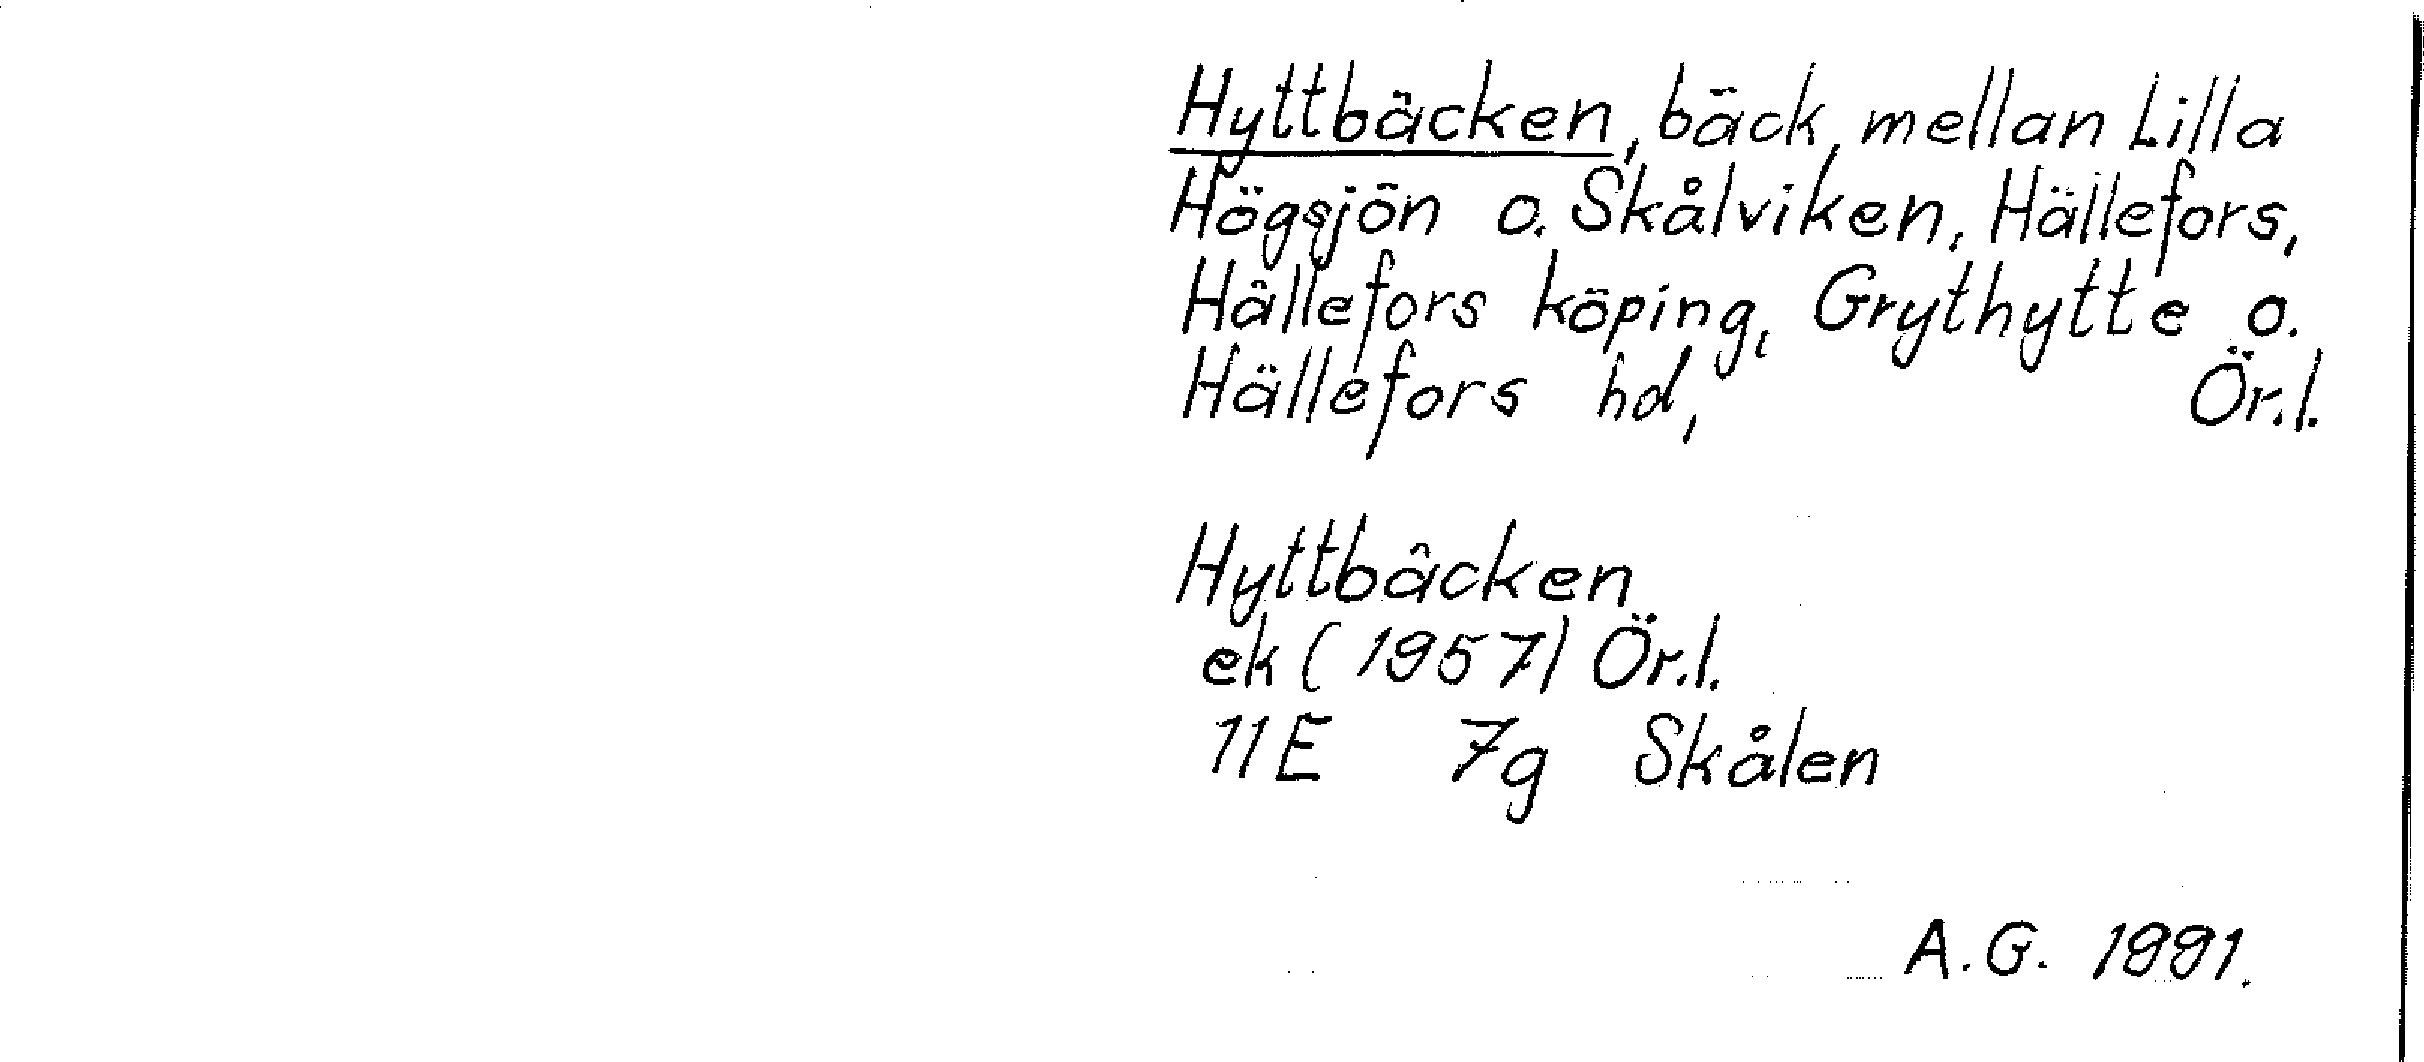 Hyttbäcken, bäck, mellan Lilla
Högsjön o. Skålviken, Hällefors,
Hällefors köping, Grythytte o.
Hällefors hd, Ör.l.
Hyttbäcken
ek (1957) Ör.l.
11E 7g Skålen
A.G. 1991.